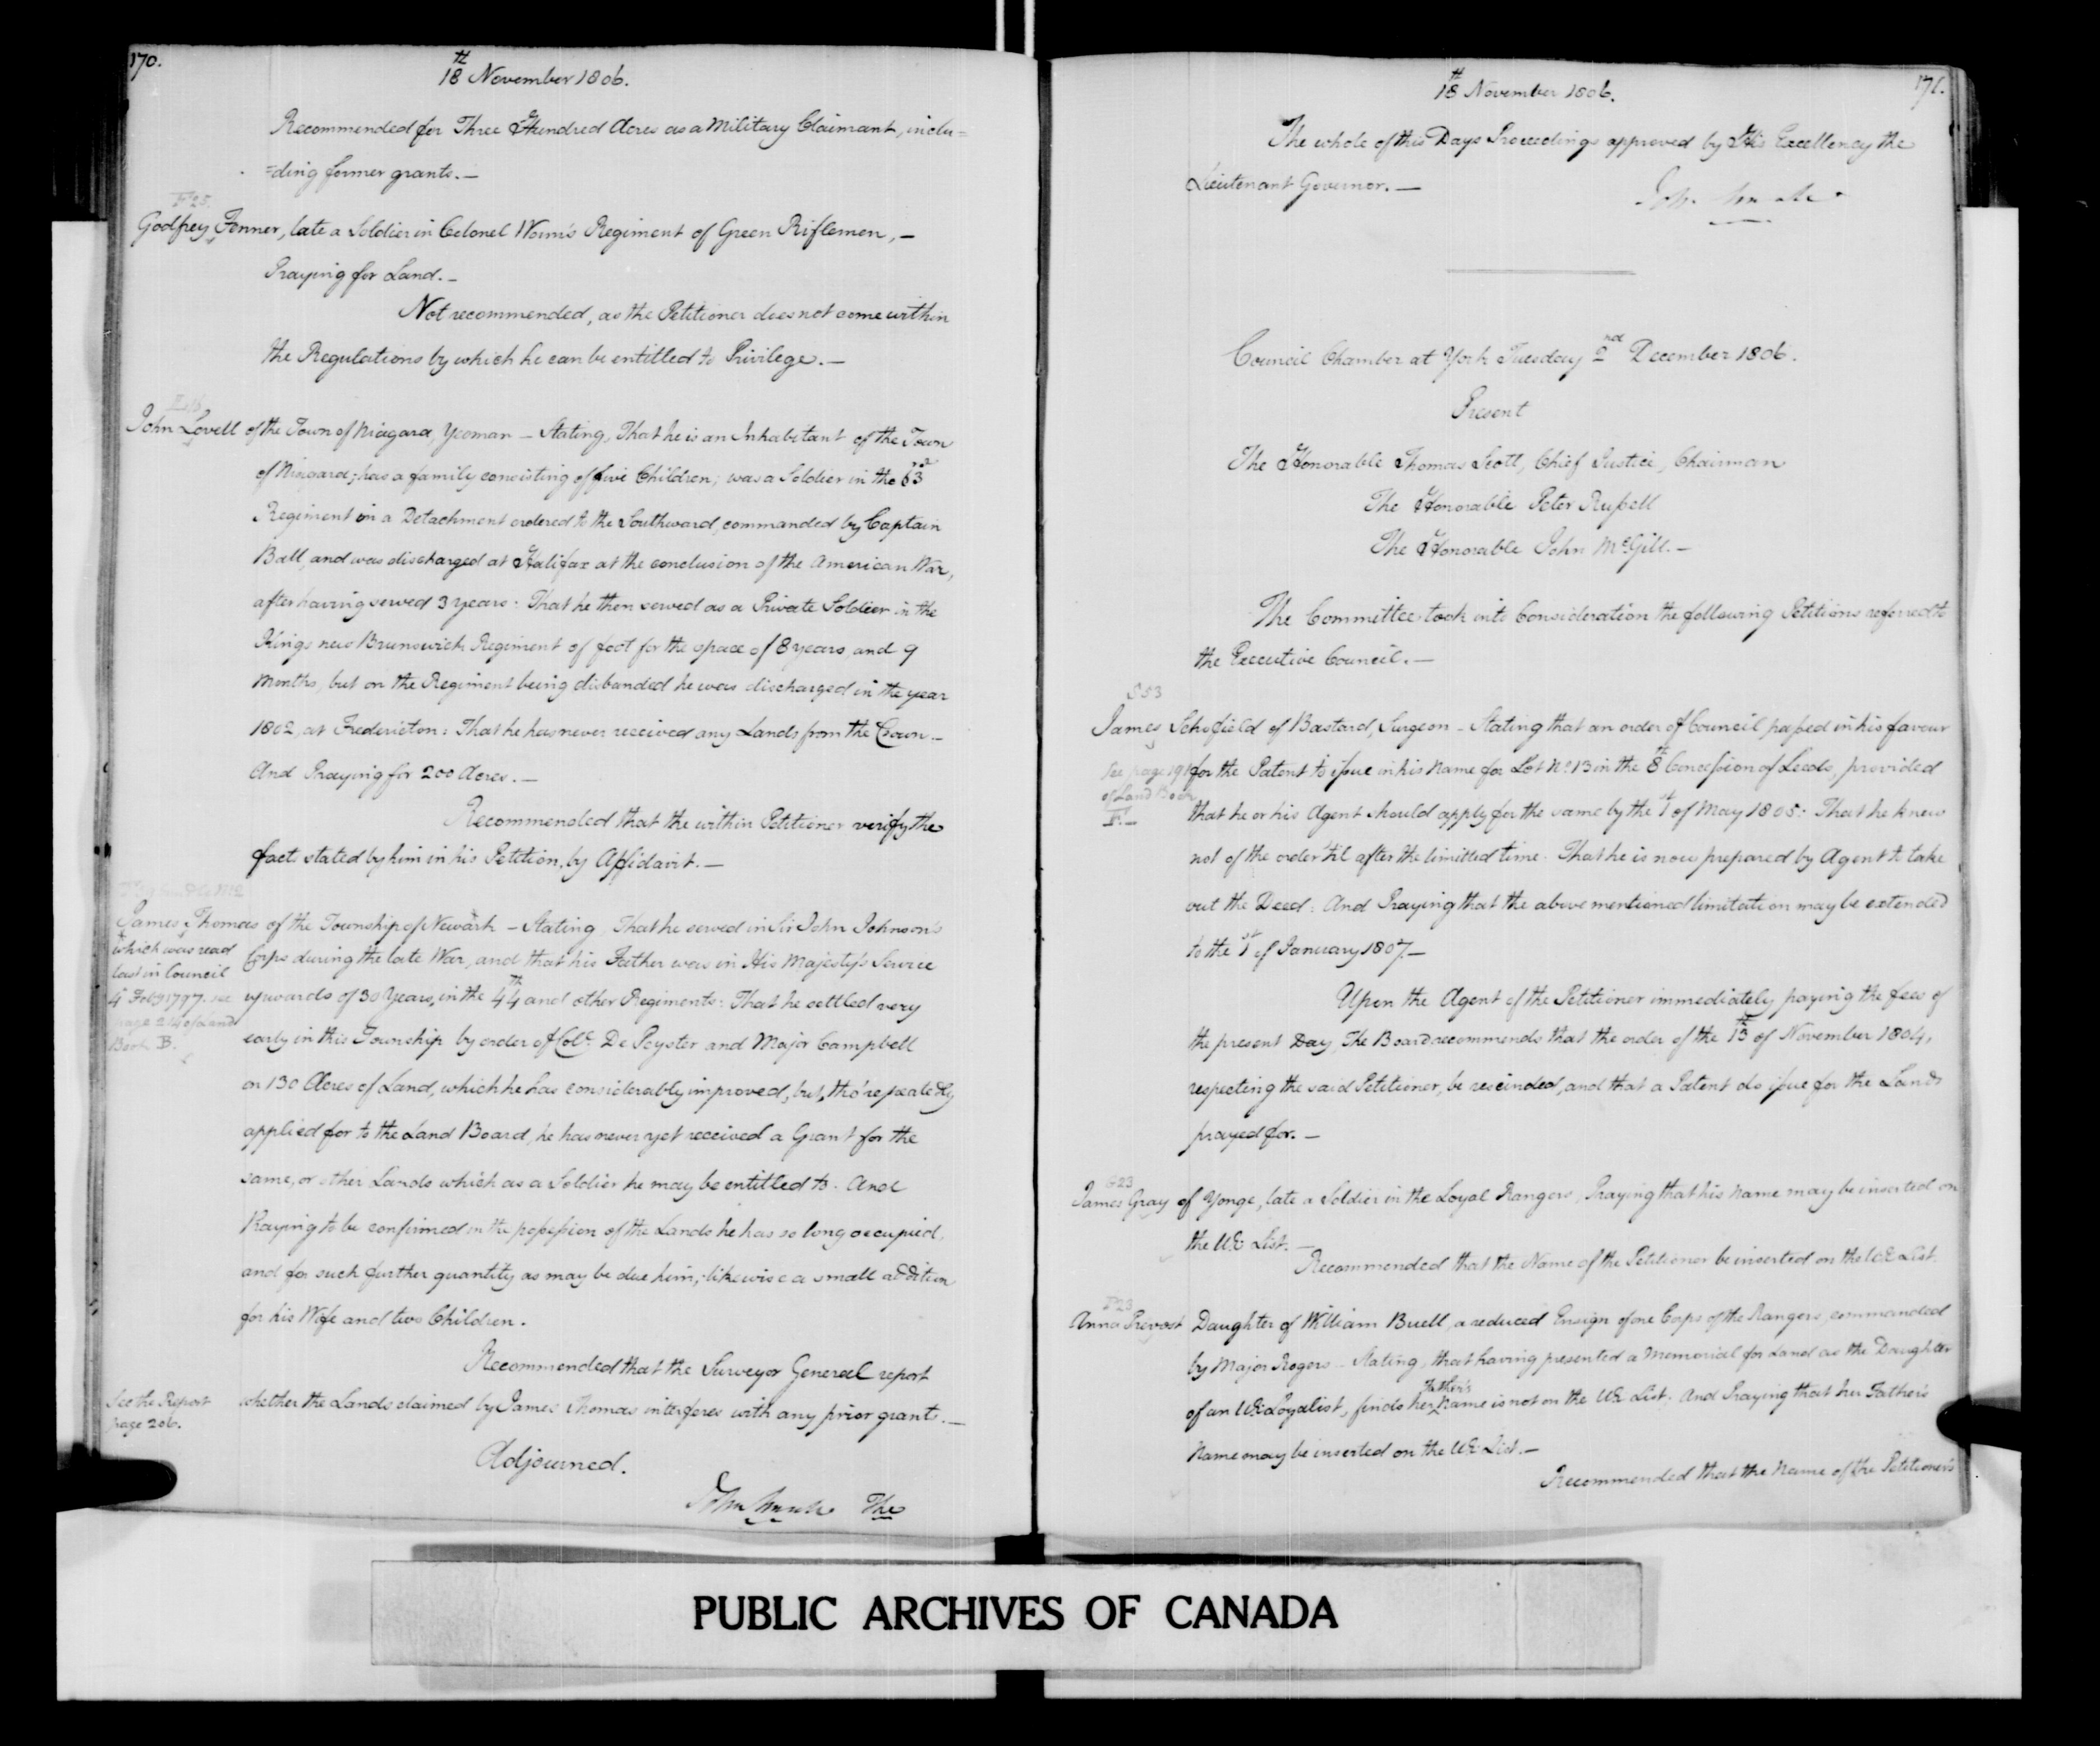 170.
18th November 1806.
Recommended for Three Hundred Acres as a Military Claimant, inclu=
=ding former grants.—
F25.
Godfrey Fenner, late a Soldier in Colonel Wourm's Regiment of Green Riflemen,—
Praying for Land.—
Not recommended, as the Petitioner does not come within
the Regulations by which he can be entitled to Privilege.—
John Lovell of the Town of Niagara, Yeoman — Stating, That he is an Inhabitant of the Town
of Niagara; has a family consisting of five Children; was a Soldier in the 63rd
Regiment in a Detachment ordered to the Southward, commanded by Captain
Ball, and was discharged at Halifax at the conclusion of the American War,
after having served 3 years: That he then served as a Private Soldier in the
Kings new Brunswick Regiment of foot for the space of 8 years, and 9
Months, but on the Regiment being disbanded he was discharged in the year
1802, at Fredericton: That he has never received any Lands from the Crown.—
And Praying for 200 Acres.—
Recommended that the within Petitioner verify the
fact stated by him in his Petition, by Affidavit.—
James Thomas of the Township of Newark — Stating, That he served in Sir John Johnson's
which was read
last in Council
4 Feby 1797. see
page 214 of Land
Book B.
Corps during the late War, and that his Father was in His Majesty's Service
upwards of 30 Years, in the 44th and other Regiments: That he settled very
early in this Township by order of Colo. De Peyster and Major Campbell
on 130 Acres of Land, which he has considerably improved, but, tho' repeatedly
applied for to the Land Board, he has never yet received a Grant for the
same, or other Lands which as a Soldier he may be entitled to. And
Praying to be confirmed in the possession of the Lands he has so long occupied,
and for such further quantity as may be due him; likewise a small addition
for his Wife and two Children.
Recommended that the Surveyor General report
See the Report
page 206.
whether the Lands claimed by James Thomas interferes with any prior grants.—
Adjourned.
The
18th November 1806.
171.
The whole of this Days Proceedings approved by His Excellency the
Lieutenant Governor.—
Council Chamber at York Tuesday 2nd December 1806.
Present
The Honorable Thomas Scott, Chief Justice, Chairman
The Honorable Peter Russell
The Honorable John McGill.—
The Committee took into Consideration the following Petitions referred to
the Executive Council.—
S53
James Schofield of Bastard, Surgeon — Stating that an order of Council passed in his favour
See page 191
of Land Book
F.—
for the Patent to issue in his Name for Lot No. 13 in the 8th Concession of Leeds, provided
that he or his Agent should apply for the same by the 1st of May 1805: That he knew
not of the order 'til after the limitted time. That he is now prepared by Agent to take
out the Deed: And Praying that the above mentioned limitation may be extended
to the 1st of January 1807.—
Upon the Agent of the Petitioner immediately paying the fees of
the present Day, The Board recommends that the order of the 13th of November 1804,
respecting the said Petitioner, be rescinded, and that a Patent do issue for the Lands
prayed for.—
G23
James Gray of Yonge, late a Soldier in the Loyal Rangers, Praying that his name may be inserted on
the U.E List.—
Recommended that the Name of the Petitioner be inserted on the U.E List.
P23
Anna Prevost Daughter of William Buell, a reduced Ensign of one Corps of the Rangers, commanded
by Major Rogers — Stating, that having presented a Memorial for Land as the Daughter
of an U.E Loyalist, finds her Father's Name is not on the U.E List. And Praying that her Father's
Name may be inserted on the U.E List.—
Recommended that the Name of the Petitioner's
PUBLIC ARCHIVES OF CANADA